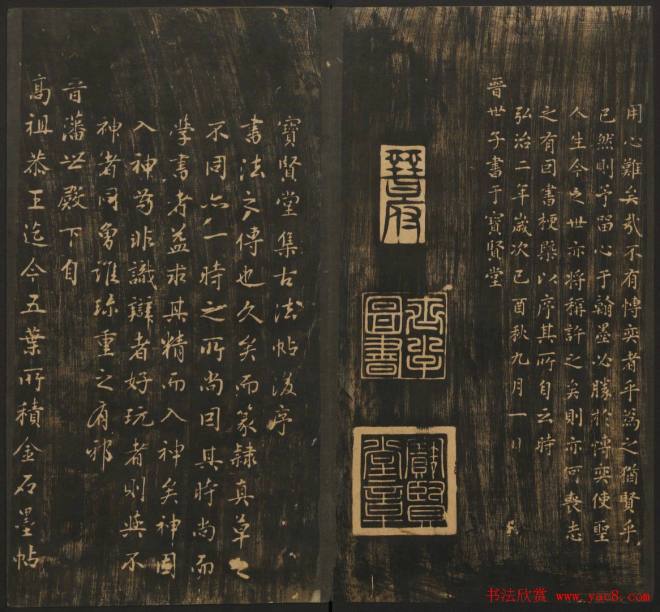 用心難矣哉不有博奕者乎為之猶賢乎
已然則予留心于翰墨必勝於博奕使聖
人生今之世亦將稱許之矣則亦何喪志
之有因書梗槩以序其所自云時
弘治二年歲次己酉秋九月一日
晉世子書于寶賢堂
晉府
圖書
寶賢
堂章
寶賢堂集古法帖後序
書法之傳也久矣而篆隸真草之
不同亦一時之所尚因其時尚而
學書者益求其精而入神矣神固
入神苟非識辯者好玩者則與不
神者同魯誰珍重之有邪
晉藩世殿下自
高祖恭王迄今五葉所積金石墨帖
书法欣赏 www.yac8.com